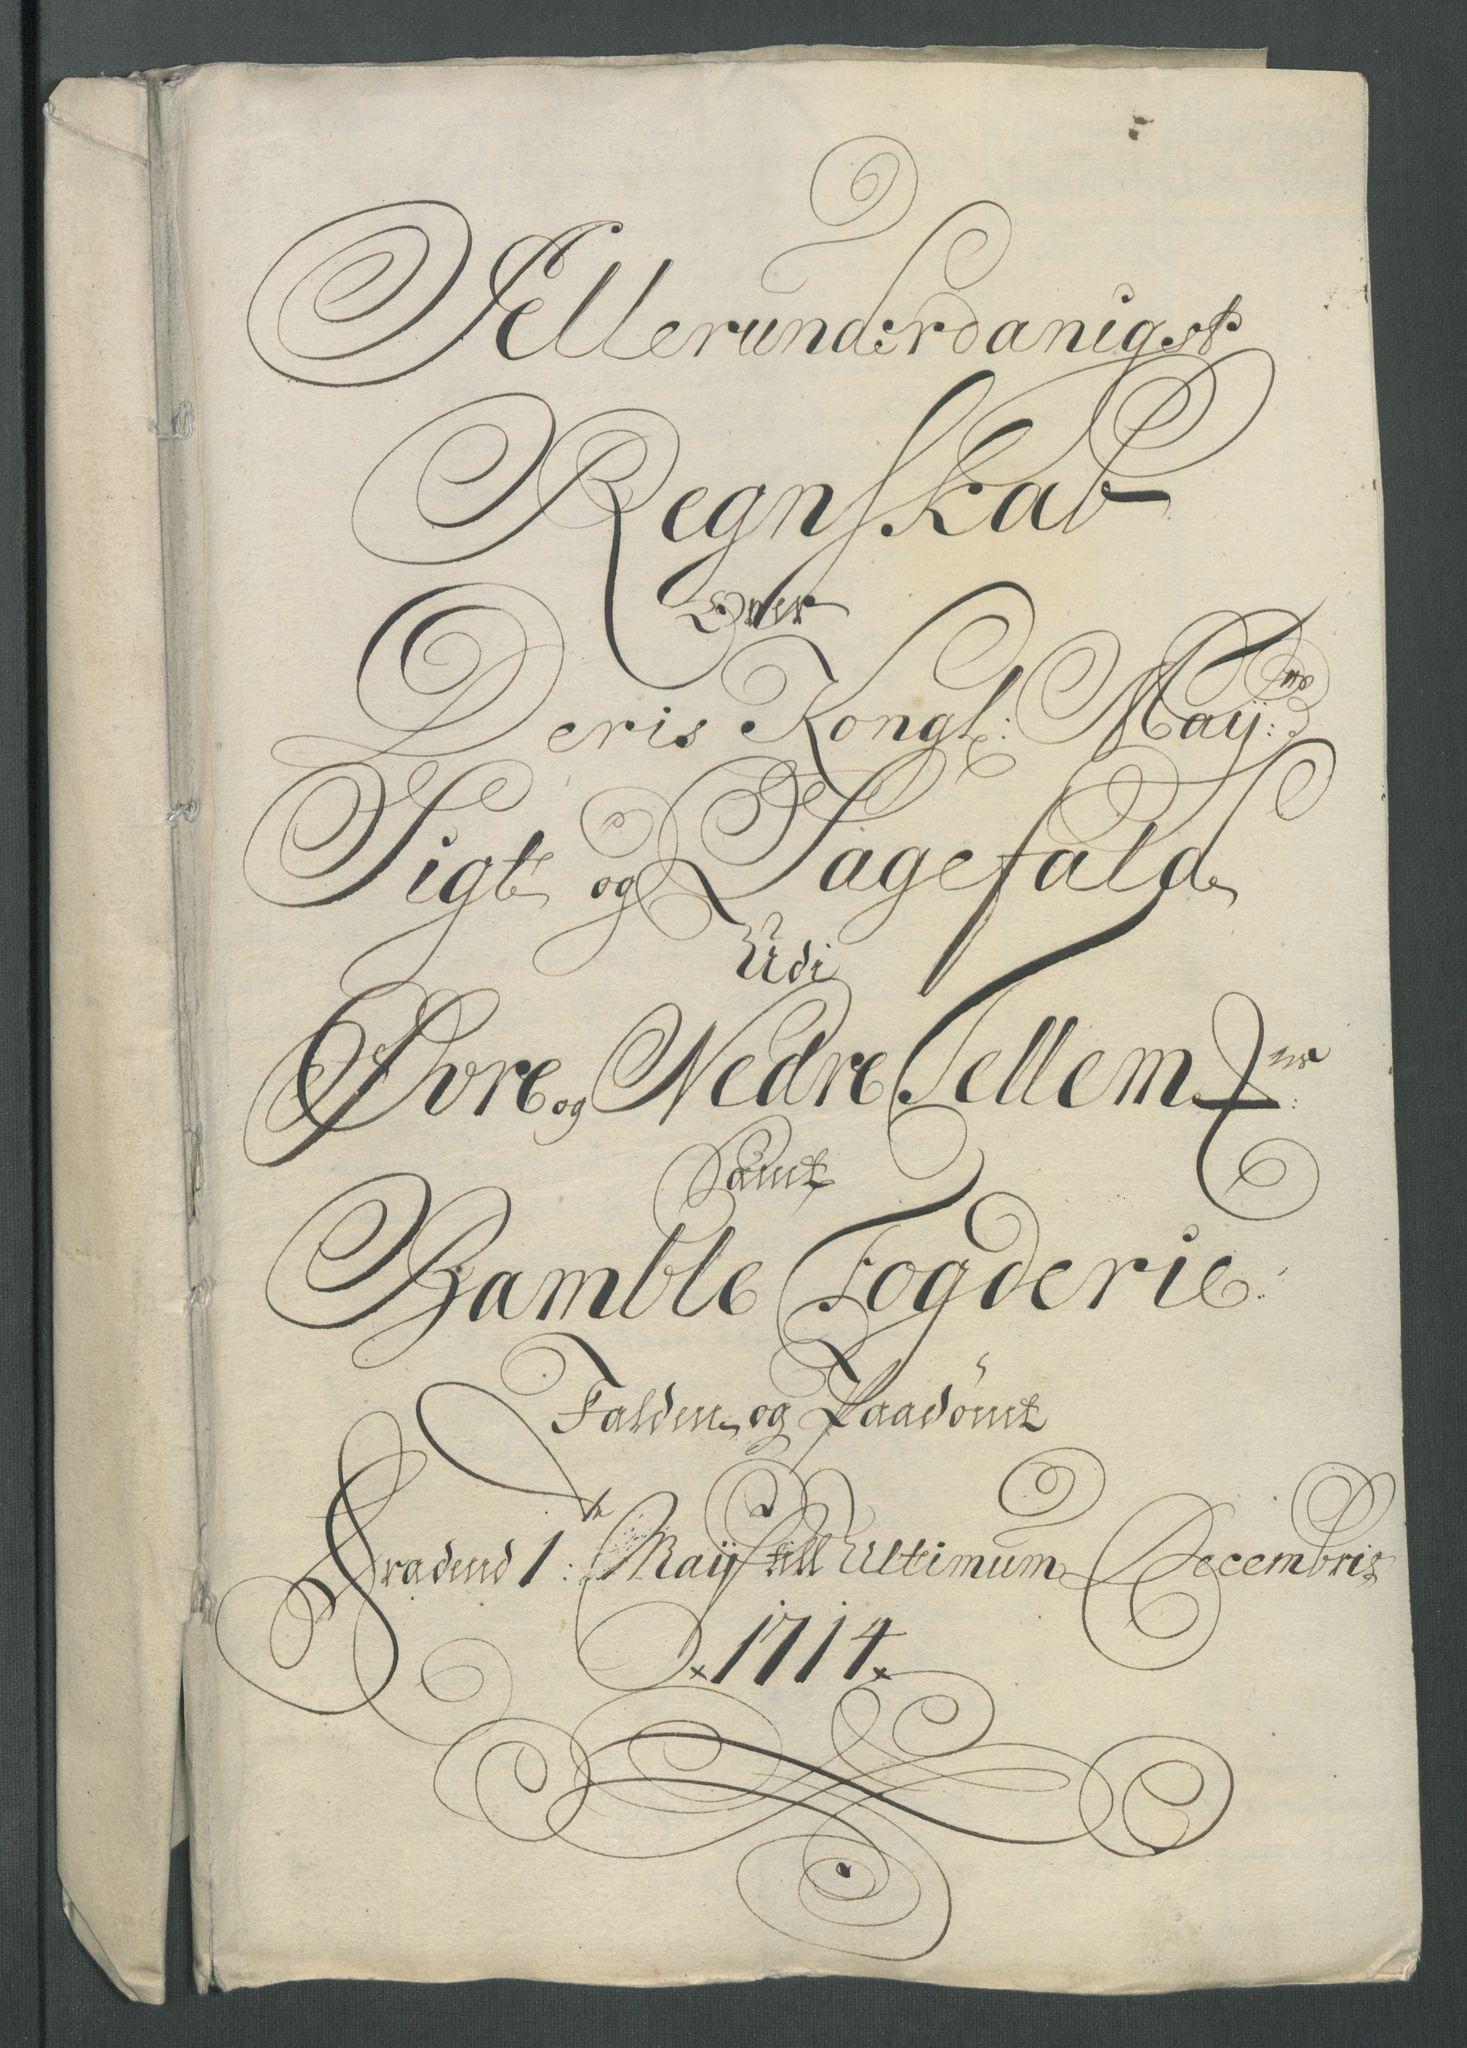 Allerunderdanigst
Regnskab
Over
Deris Kongl: Maÿ:ts
Sigt og Sagefald
Udi
Øvre og Nedre Tellem:n
Samt
Bamble Fogderie:
Falden og Paadömt
Fradend 1: Maÿ till Ultimum Decembris
1714